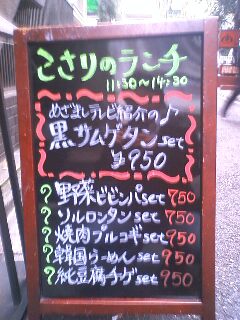 こさりのランチ
11:30〜14:30
めざましテレビ紹介の♪
黒サムゲタンset
¥950
?野菜ビビンバset 750
?ソルロンタンset 750
?焼肉プルコギset 950
?韓国らーめんset 950
?純豆腐チゲset 950